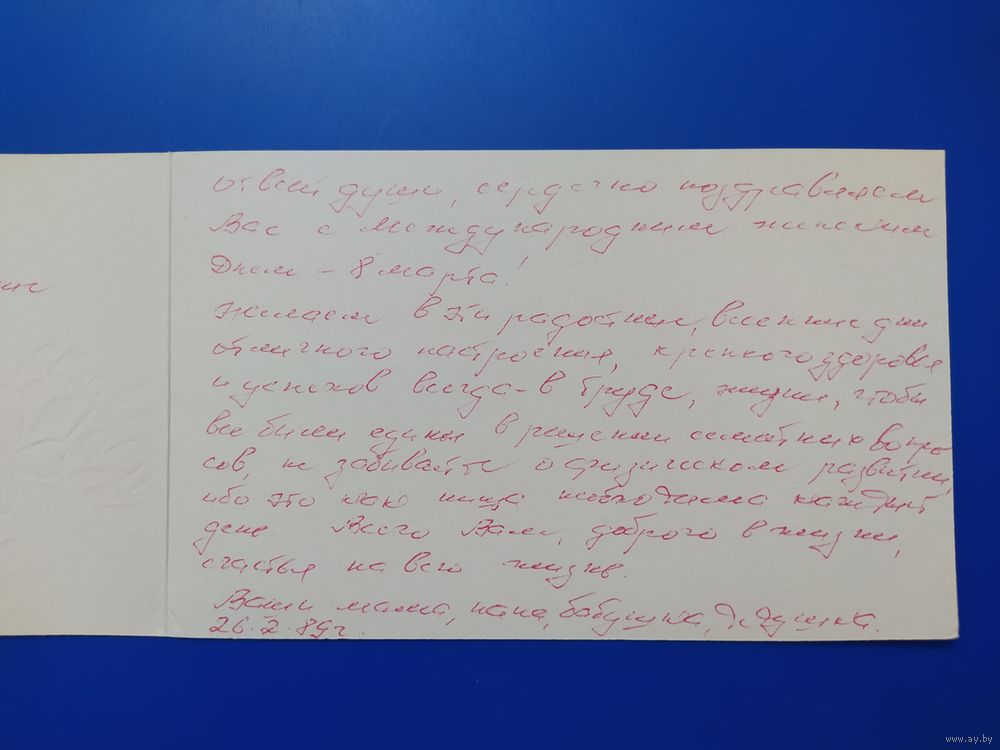 от всей души, сердечно поздравляем
Вас с международным женским
Днем - 8 марта!
Желаем в эти радостные, весенние дни
отличного настроения, крепкого здоровья
и успехов всегда - в труде, жизни, чтобы
все были едины в решении семейных вопро
сов, не забывайте о физическом развитии,
ибо это как пища необходима каждый
день. Всего Вам, доброго в жизни,
счастья на всю жизнь.
Ваши мама, папа, бабушка, дедушка.
26.2.89г.
www.ay.by